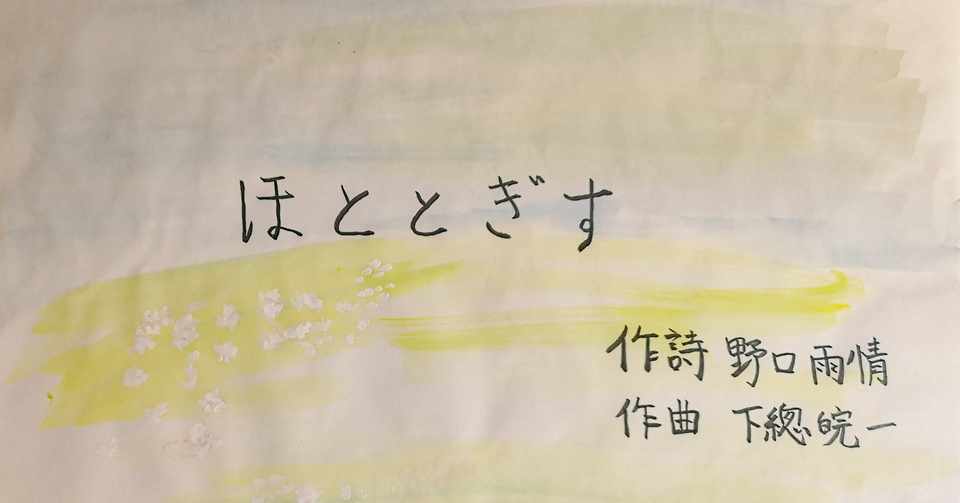 ほととぎす
作詩 野口雨情
作曲 下總皖一